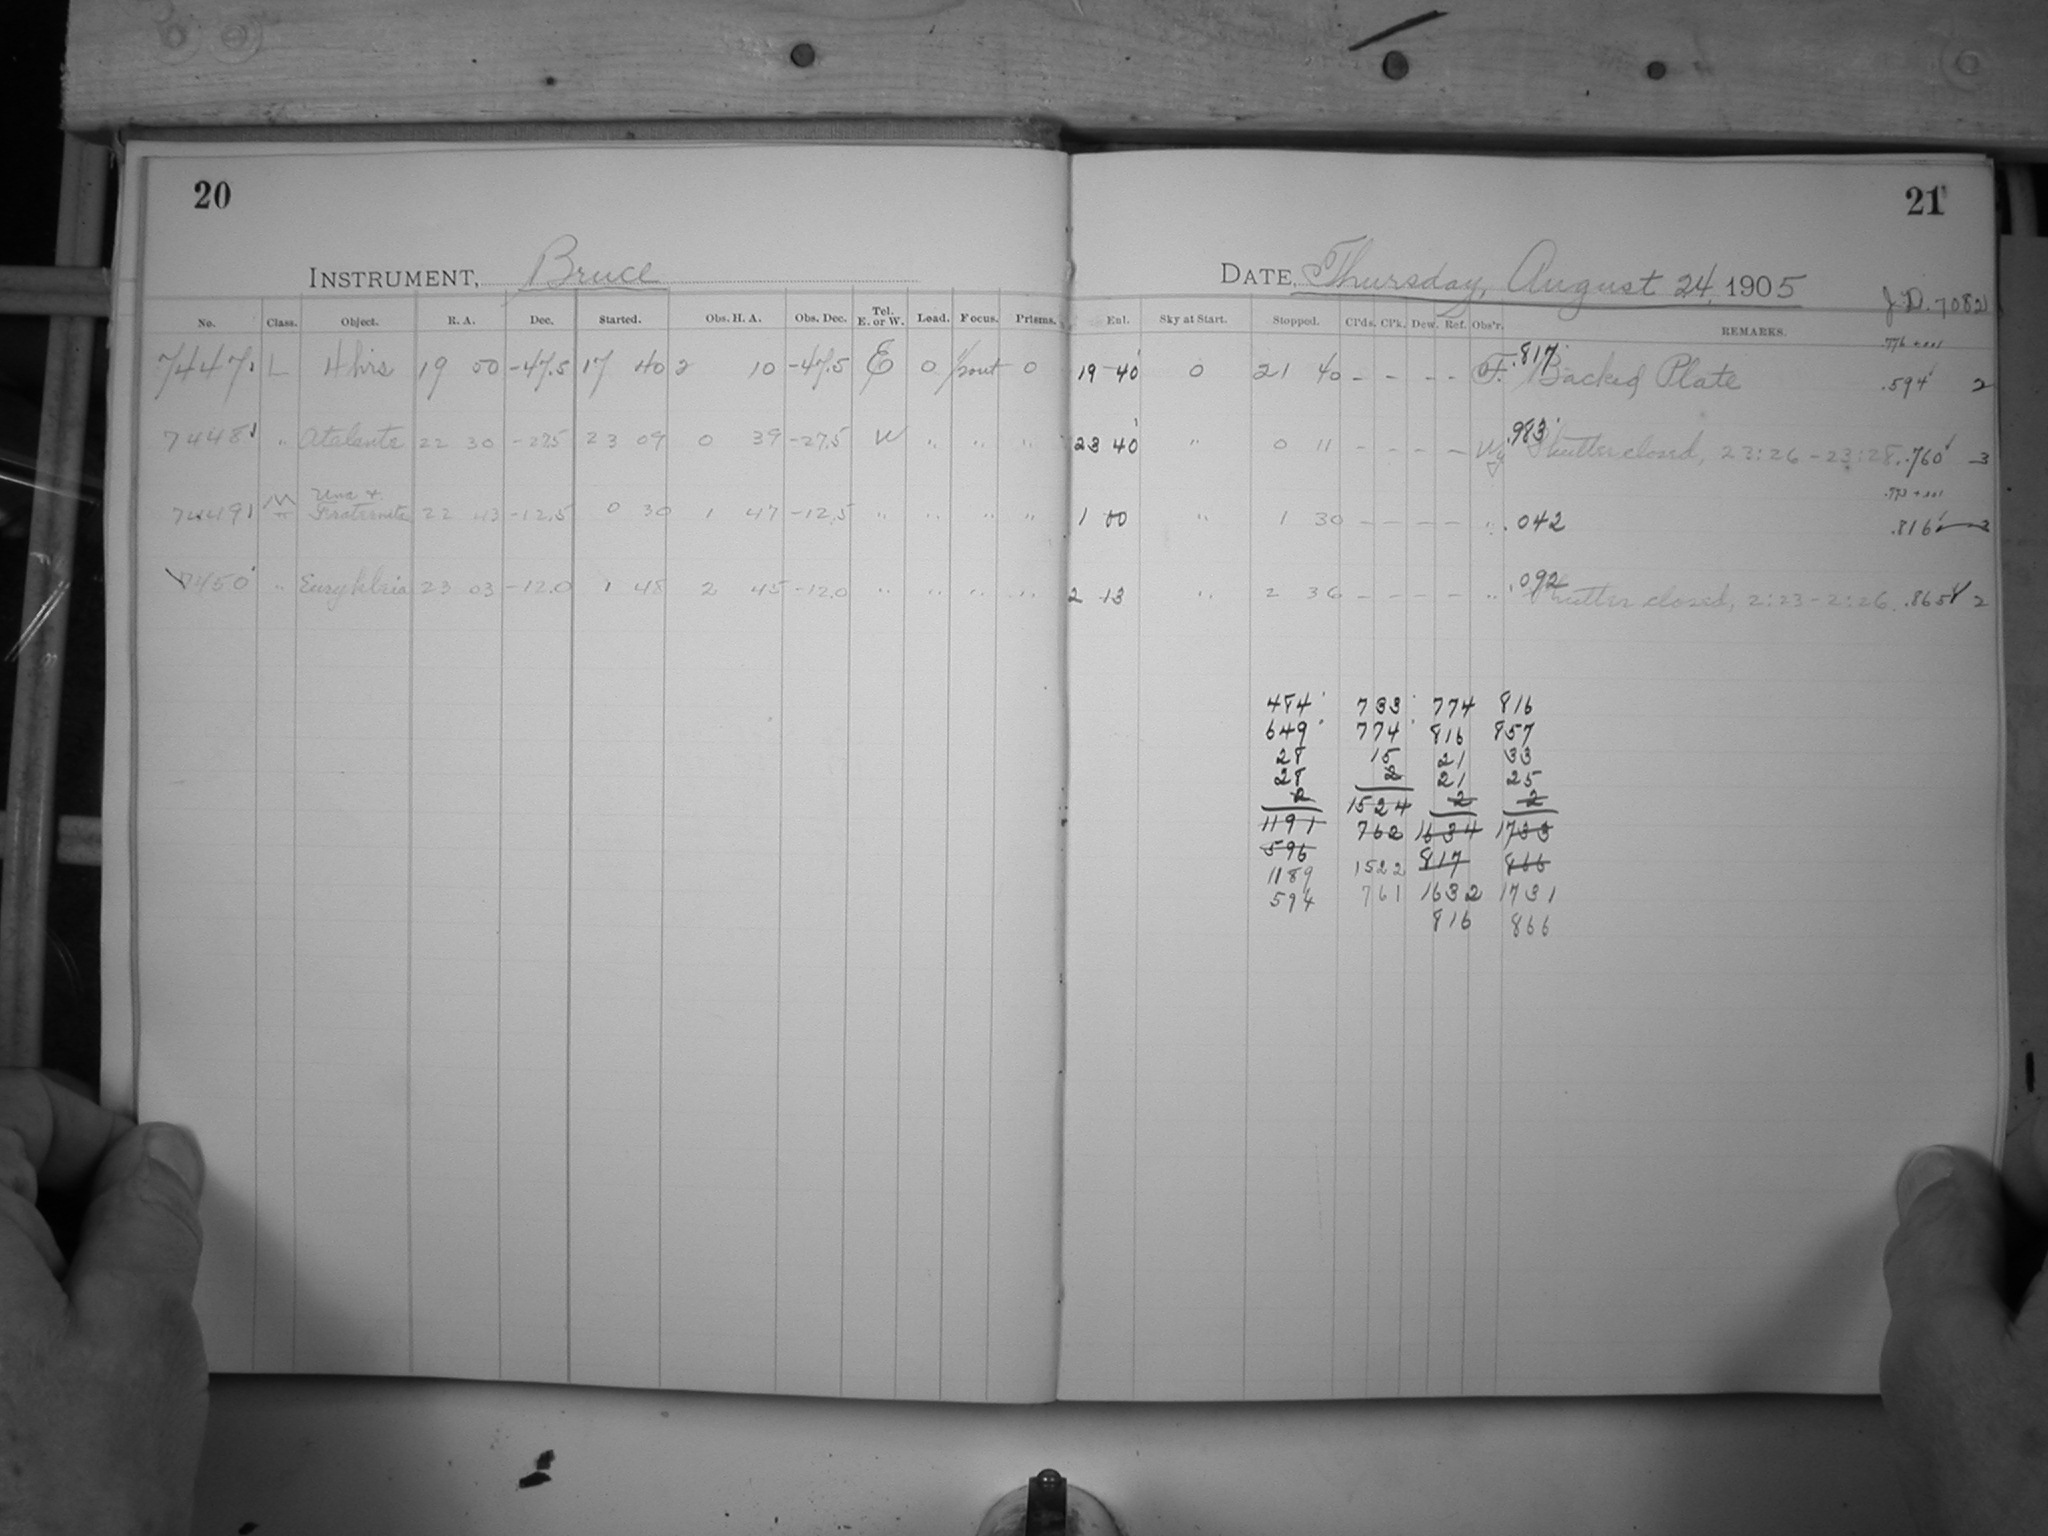 20
21
INSTRUMENT, Bruce
DATE, Thursday, August 24, 1905
J.D. 7082
No. Class. Object. R. A. Dec. Started. Obs. H. A. Obs. Dec. Tel. E. or W. Load. Focus. Prisms. Eul. Sky at Start. Stopped. Cl'ds. Cl'k. Dew. Ref. Obs'r. REMARKS.
7447 L 4 hrs 19 00 -47.5 17 40 2 10 -47.5 E 0 0 19 40 0 21 40 - - - - F. .817 Backed Plate .594 2
7448 " Atalante 22 30 -27.5 23 09 0 39 -27.5 W " " " 23 40 " 0 11 - - - - Wy .983 Shutter closed, 23:26 - 23:28. .760 3
7449 Una + Fraternitas 22 43 -12.5 0 30 1 47 -12.5 " " " " 1 00 " 1 30 - - - - " .042 .816 3
7450 " Eurykleia 23 03 -12.0 1 48 2 45 -12.0 " " " " 2 13 " 2 36 - - - - " .092 Shutter closed, 2:23 - 2:26. .865 2
484 733 774 816
649 774 816 857
28 15 21 33
28 2 21 25
2 1524 2 2
1191 762 1634 1733
596 1522 817 866
1189 761 1632 1731
594 816 866